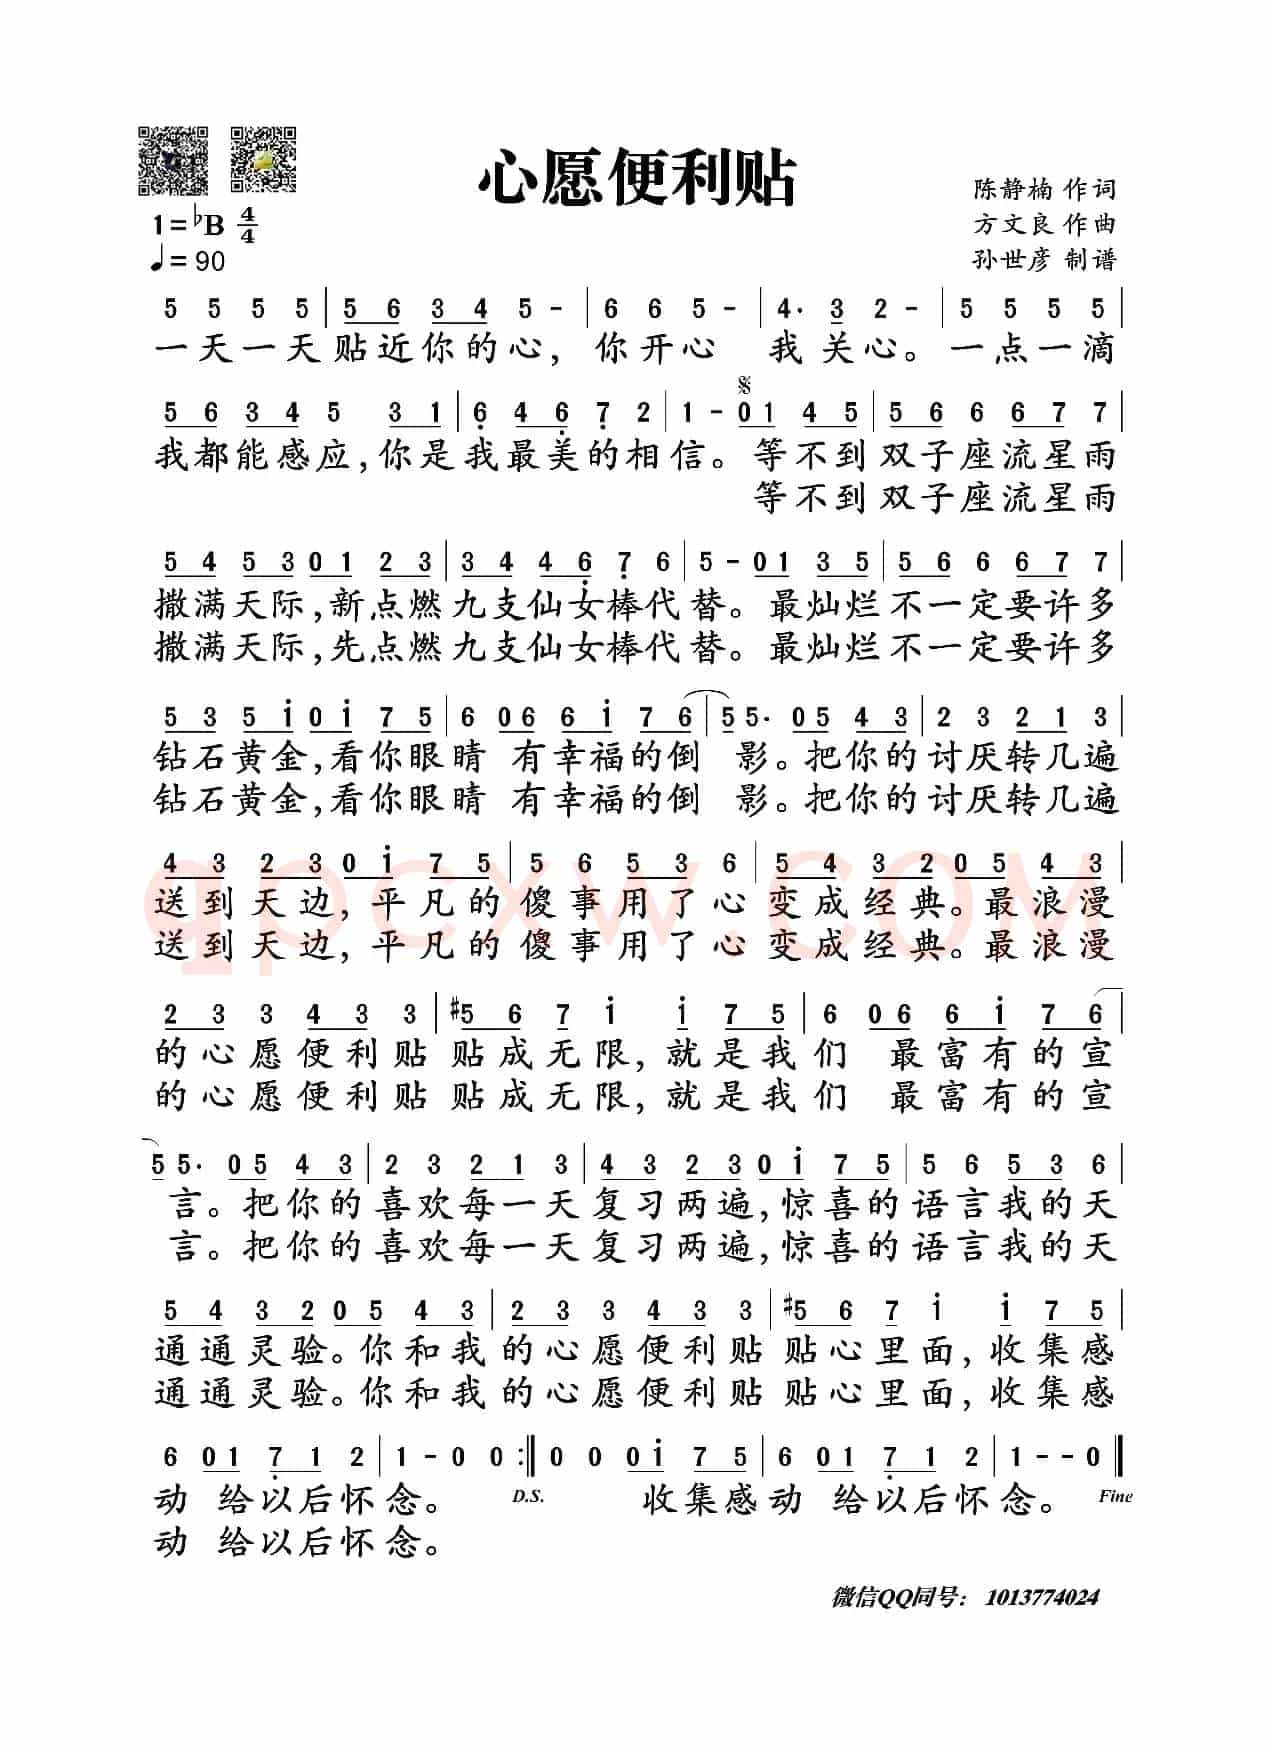 心愿便利贴
陈静楠 作词
1=♭B 4/4
方文良 作曲
♩= 90
孙世彦 制谱
5 5 5 5 | 5 6 3 4 5 - | 6 6 5 - | 4· 3 2 - | 5 5 5 5 |
一天一天贴近你的心，你开心 我关心。一点一滴
5 6 3 4 5 3 1 | 6 4 6 7 2 | 1 - 𝄋 0 1 4 5 | 5 6 6 6 7 7 |
我都能感应，你是我最美的相信。等不到双子座流星雨
等不到双子座流星雨
5 4 5 3 0 1 2 3 | 3 4 4 6 7 6 | 5 - 0 1 3 5 | 5 6 6 6 7 7 |
撒满天际，新点燃九支仙女棒代替。最灿烂不一定要许多
撒满天际，先点燃九支仙女棒代替。最灿烂不一定要许多
5 3 5 i 0 i 7 5 | 6 0 6 6 i 7 6 | 5 5· 0 5 4 3 | 2 3 2 1 3 |
钻石黄金，看你眼睛 有幸福的倒 影。把你的讨厌转几遍
钻石黄金，看你眼睛 有幸福的倒 影。把你的讨厌转几遍
4 3 2 3 0 i 7 5 | 5 6 5 3 6 | 5 4 3 2 0 5 4 3 |
qpcxw.com
送到天边，平凡的傻事用了心 变成经典。最浪漫
送到天边，平凡的傻事用了心 变成经典。最浪漫
2 3 3 4 3 3 | #5 6 7 i i 7 5 | 6 0 6 6 i 7 6 |
的心愿便利贴 贴成无限，就是我们 最富有的宣
的心愿便利贴 贴成无限，就是我们 最富有的宣
5 5· 0 5 4 3 | 2 3 2 1 3 | 4 3 2 3 0 i 7 5 | 5 6 5 3 6 |
言。把你的喜欢每一天复习两遍，惊喜的语言我的天
言。把你的喜欢每一天复习两遍，惊喜的语言我的天
5 4 3 2 0 5 4 3 | 2 3 3 4 3 3 | #5 6 7 i i 7 5 |
通通灵验。你和我的心愿便利贴 贴心里面，收集感
通通灵验。你和我的心愿便利贴 贴心里面，收集感
6 0 1 7 1 2 | 1 - 0 0 :‖ 0 0 0 i 7 5 | 6 0 1 7 1 2 | 1 - - 0 ‖
动 给以后怀念。 D.S. 收集感动 给以后怀念。 Fine
动 给以后怀念。
微信QQ同号： 1013774024